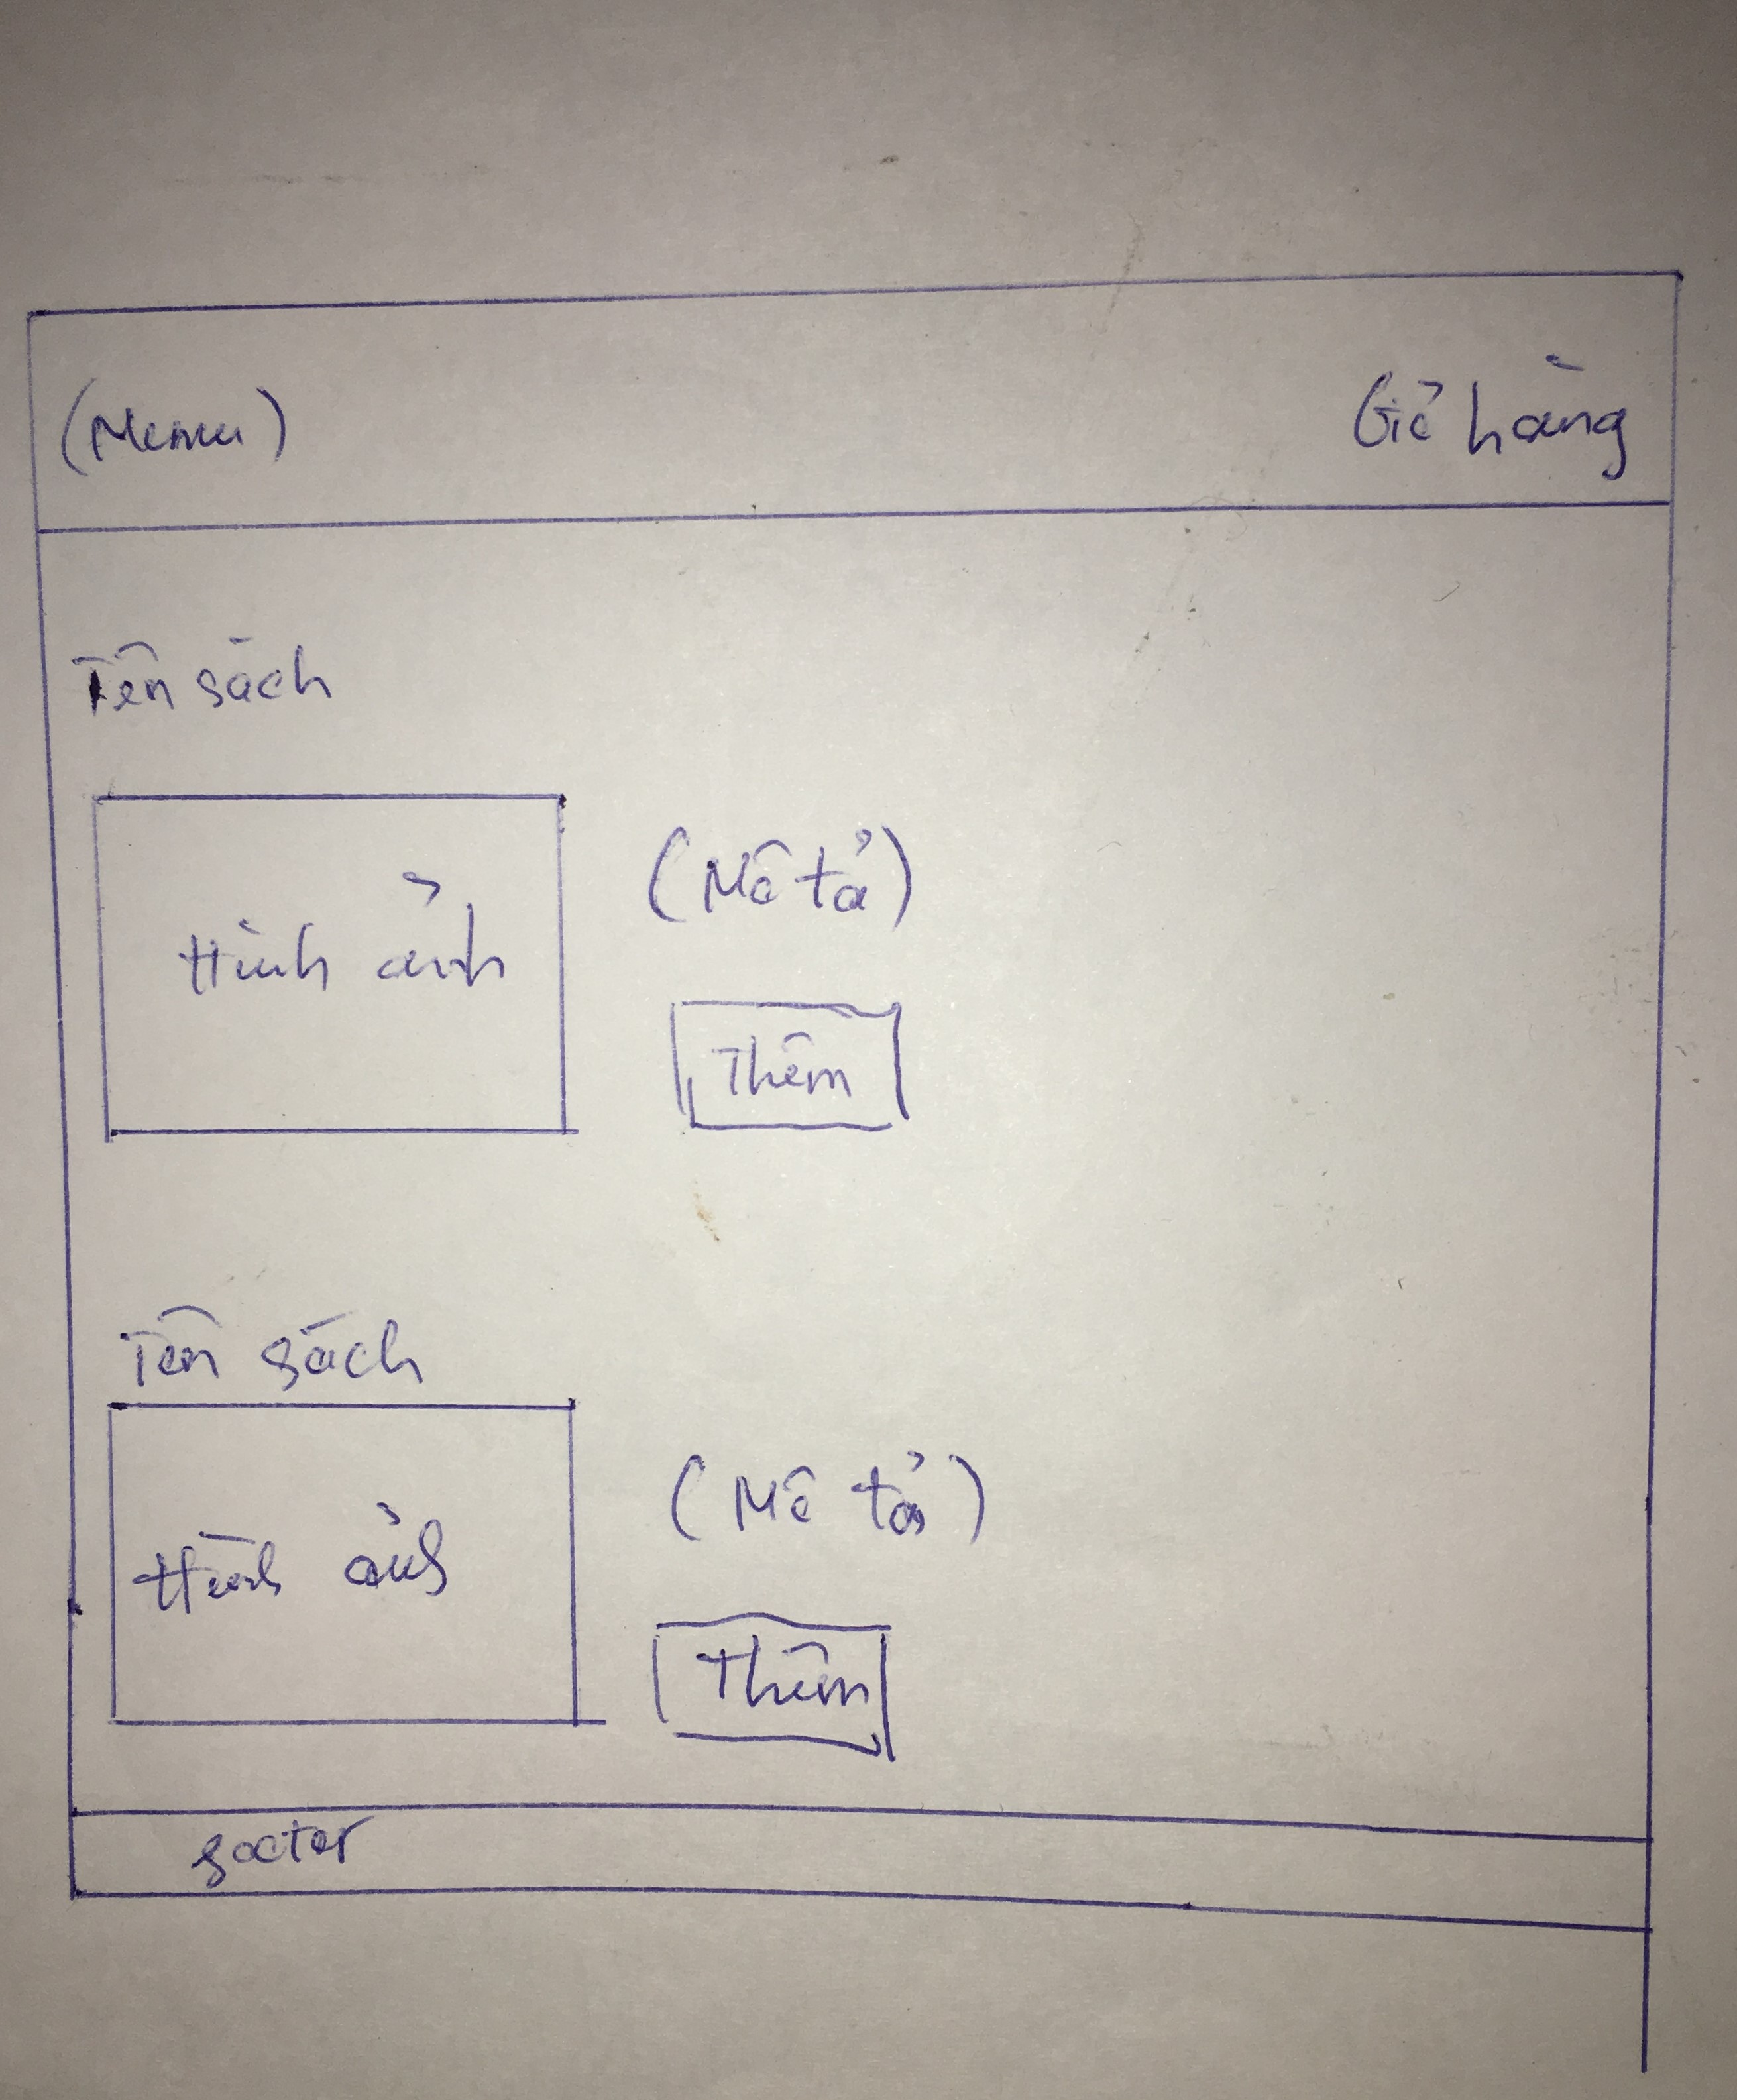 (Menu)
Giỏ hàng
Tên sách
Hình ảnh
(Mô tả)
Thêm
Tên sách
Hình ảnh
(Mô tả)
Thêm
footer